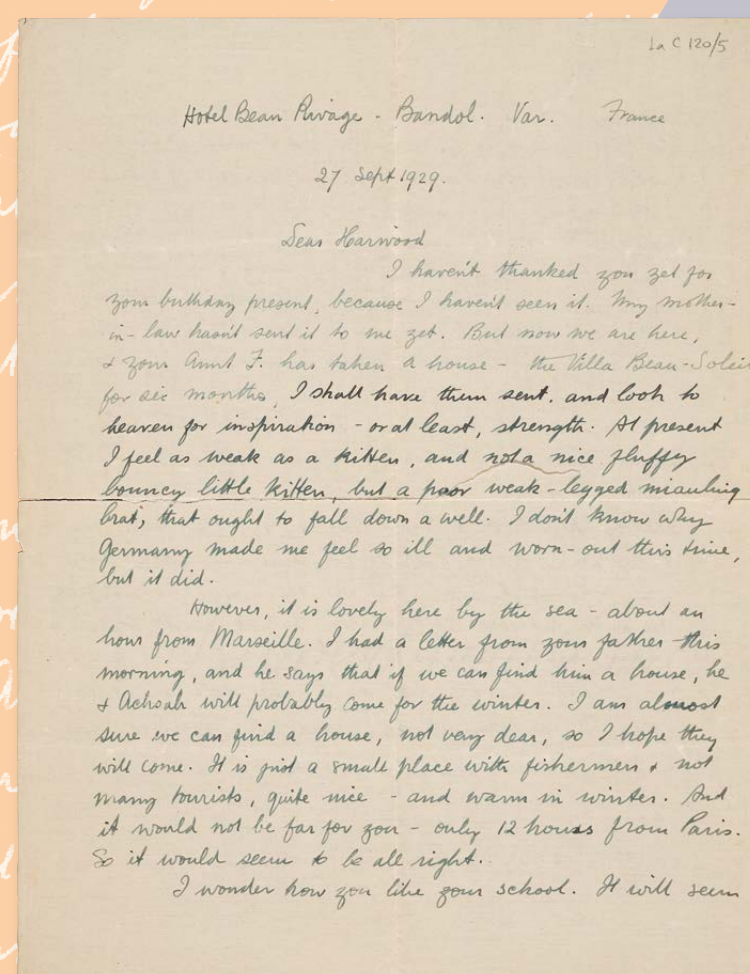 La C 120/5
Hotel Beau Rivage - Bandol. Var. France
27 Sept 1929.
Dear Harwood
I haven't thanked you yet for
your birthday present, because I haven't seen it. My mother-
in-law hasn't sent it to me yet. But now we are here,
& your Aunt F. has taken a house - the Villa Beau-Soleil
for six months, I shall have them sent, and look to
heaven for inspiration - or at least, strength. At present
I feel as weak as a kitten, and not a nice fluffy
bouncy little kitten, but a poor weak-legged miauling
brat, that ought to fall down a well. I don't know why
Germany made me feel so ill and worn-out this time,
but it did.
However, it is lovely here by the sea - about an
hour from Marseille. I had a letter from your father this
morning, and he says that if we can find him a house, he
& Achsah will probably come for the winter. I am almost
sure we can find a house, not very dear, so I hope they
will come. It is just a small place with fishermen & not
many tourists, quite nice - and warm in winter. And
it would not be far for you - only 12 hours from Paris.
So it would seem to be all right.
I wonder how you like your school. It will seem